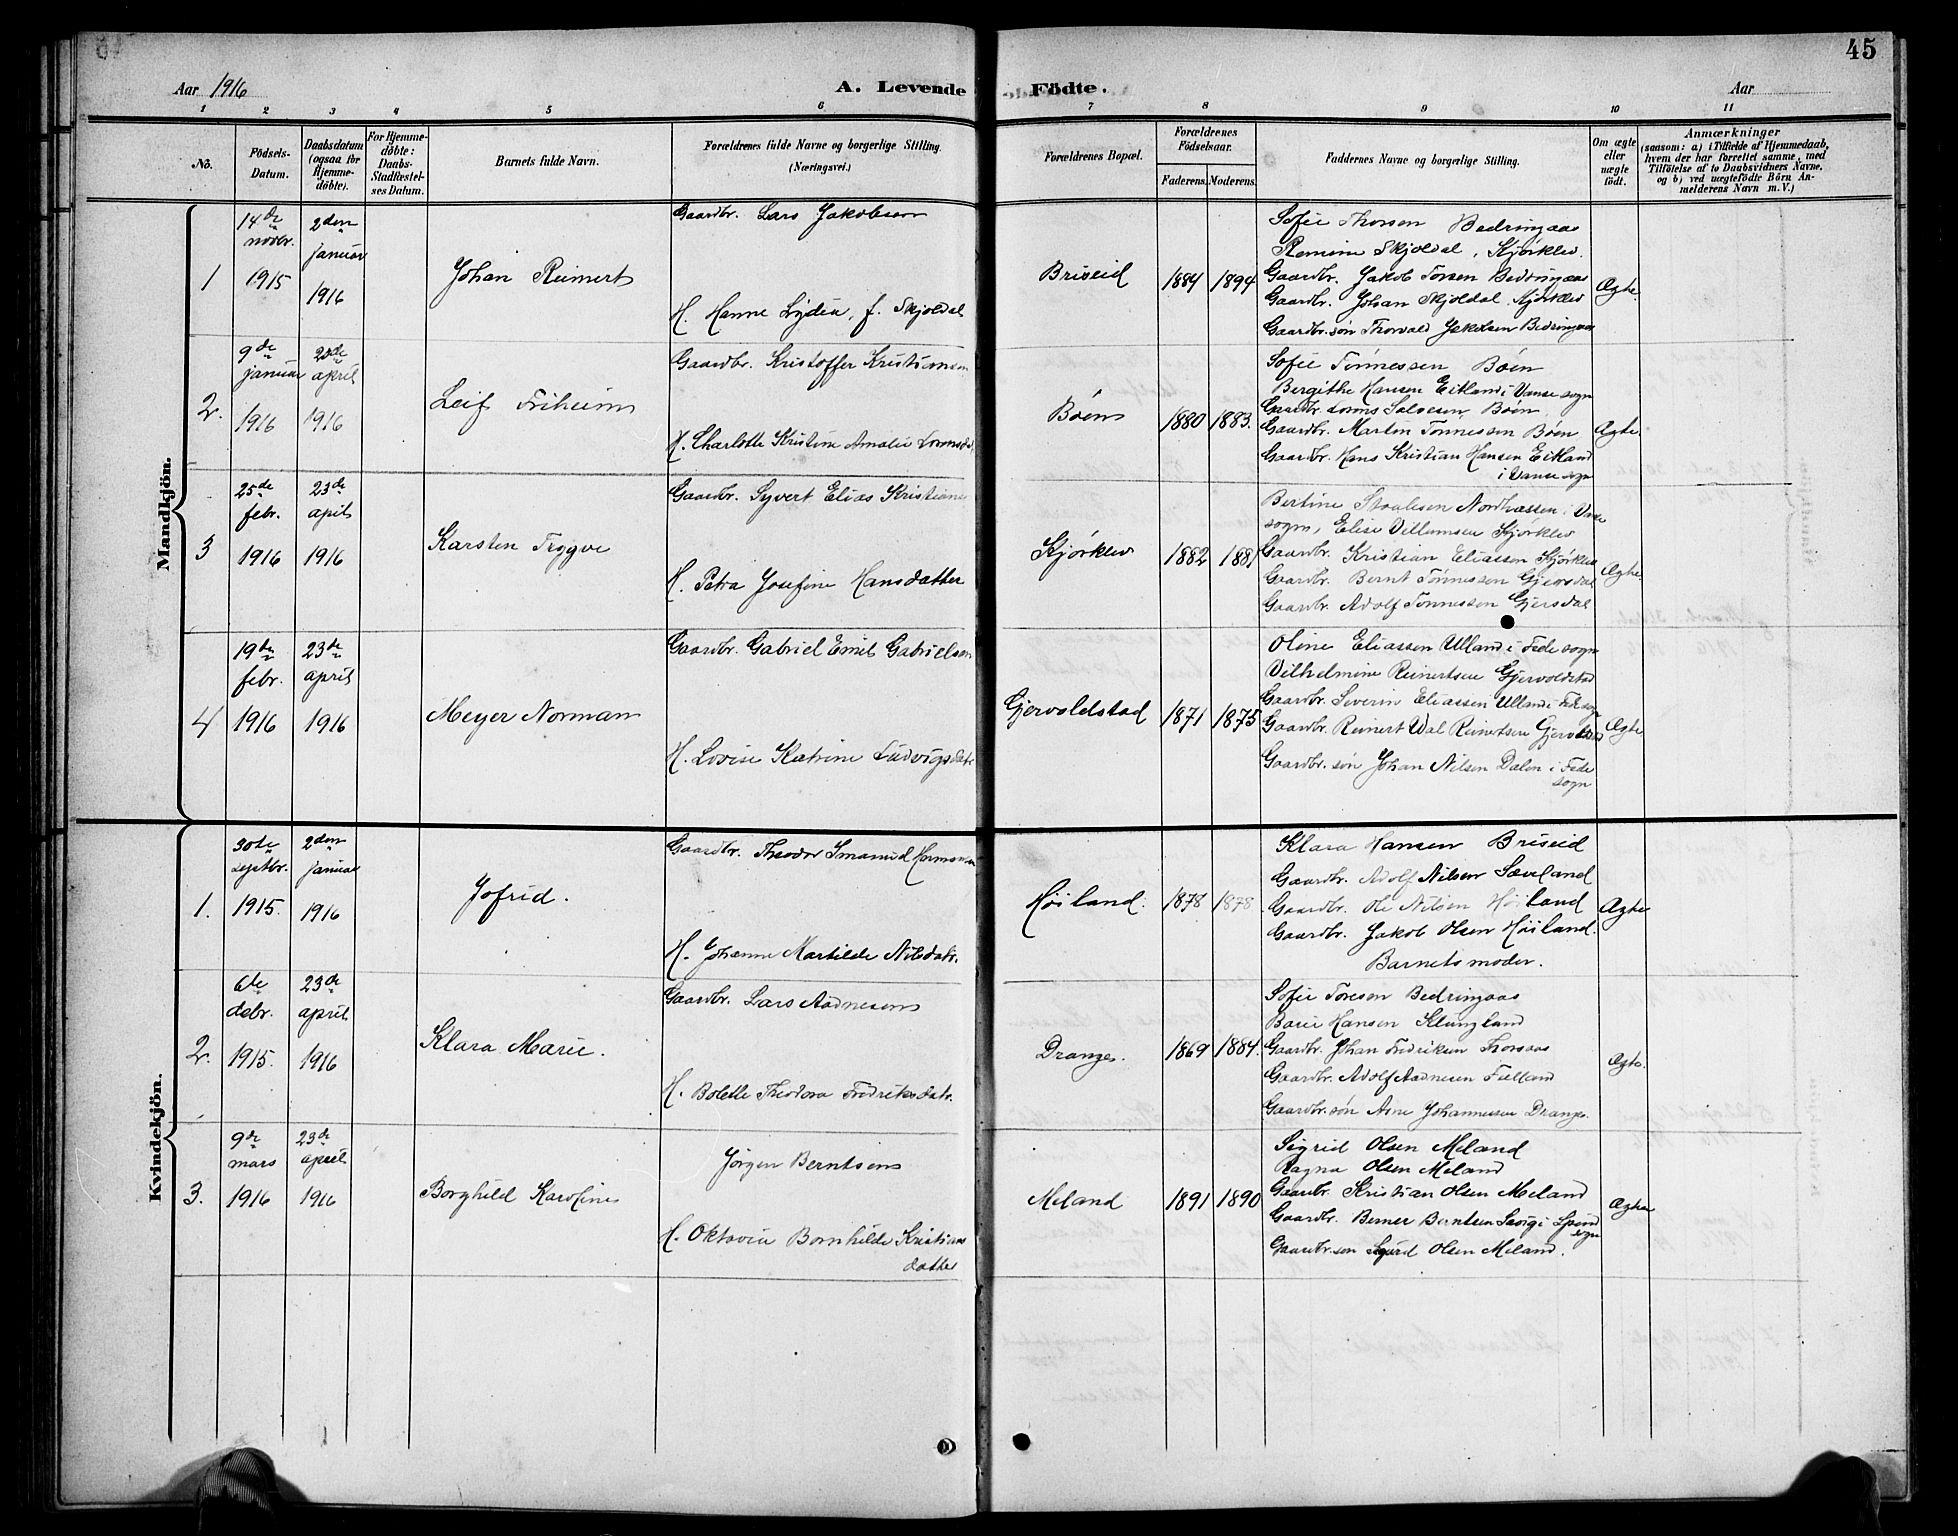 45
Aar 1916
A. Levende Födte.
Aar
1 2 3 4 5 6 7 8 9 10 11
No.
Födsels-
Datum.
Daabsdatum
(ogsaa for
Hjemme-
döbte).
For Hjemme-
döbte:
Daabs-
Stadfæstel-
ses Datum.
Barnets fulde Navn.
Forældrenes fulde Navne og borgerlige Stilling.
(Næringsvei.)
Forældrenes Bopæl.
Forældrenes
Födselsaar.
Faderens. Moderens.
Faddernes Navne og borgerlige Stilling.
Om ægte
eller
uægte
födt.
Anmærkninger
(saasom: a) i Tilfælde af Hjemmedaab,
hvem der har forrettet samme, med
Tilföielse af to Daabsvidners Navne,
og b) ved uægtefödte Börn An-
melderens Navn m. V.)
Mandkjön.
1
14de
novbr.
1915
2den
januar
1916
Johan Reimert
Gaardbr. Lars Jakobsen
H. Hanne Lydia, f. Skjoldal
Briseid
1884 1894
Sofie Thorsen Bedringaas
Skjoldal, Kjørklev.
Gaardbr. Jakob Torsen Bedringaas
Gaardbr. Johan Skjoldal, Kjørklev
Gaardbr.søn Thorvald Jakobsen Bedringaas
Ægte.
2.
9de
januar
1916
april
1916
Leif Friheim
Gaardbr. Kristoffer Kristiansen
H. Charlotte Kristine Amalie
Bøen
1880 1883.
Sofie Tønnessen Bøen
Bergithe Hansen Eitland i Vanse sogn
Gaardbr. Salvesen Bøen
Gaardbr. Martin Tønnessen Bøen
Gaardbr. Hans Kristian Hansen Eitland
i Vanse sogn
Ægte.
3
25de
febr.
1916
23de
april
1916
Karsten Trygve
Gaardbr. Syvert Elias Kristiansen
H. Petra Josefine Hansdatter
Kjørklev
1882 1881
Bertine Staalesen Nordhassen i Vanse
sogn, Elise Villumsen Kjørklev
Gaardbr. Kristian Eliassen Kjørklev
Gaardbr. Bernt Tønnessen Gjersdal
Gaardbr. Adolf Tønnessen Gjersdal
Ægte.
4
19de
febr.
1916
23de
april
1916
Meyer Norman
Gaardbr. Gabriel Emil Gabrielsen
H. Lovise Katrine Ludvigsdatr.
Gjervoldstad
1871 1875
Oline Eliassen Ulland i Fede sogn
Vilhelmine Reinertsen Gjervoldstad
Gaardbr. Severin Eliassen Ulland i Fede sogn
Gaardbr. Reinert Reinertsen
Gaardbr. søn Johan Nilsen Dalen i Fede
sogn
Ægte
Kvindekjön.
1.
30te
septbr.
1915.
2den
januar
1916
Jofrid.
Gaardbr. Theodor Emanuel Hermansen
H. Johanne Martilde Nilsdatr.
Høiland.
1878 1878
Klara Hansen Briseid
Gaardbr. Adolf Nilsen Sæveland
Gaardbr. Ole Nilsen Høiland
Gaardbr. Jakob Olsen Høiland.
Barnets moder.
Ægte
2.
6te
debr.
1915.
23de
april
1916
Klara Marie.
Gaardbr. Lars Aadnesen
H. Bolette Theodora Fredriksdatr.
Drange.
1869 1884.
Sofie Toresen Bedringaas
Hansen Klungland
Gaardbr. Johan Fredriksen
Gaardbr. Adolf Aadnesen
Gaardbr. søn Arne Johannessen Drange.
Ægte.
3.
9de
mars
1916
23de
april
1916
Borghild Karoline
Jørgen Berntsen
H. Oktavia Bornhilde Kristians
datter
Meland
1891 1890
Sigrid Olsen Meland
Ragna Olsen Meland
Gaardbr. Kristian Olsen Meland
Gaardbr. Berner Berntsen
sogn
Gaardbr. søn Sigurd Olsen Meland.
Ægte